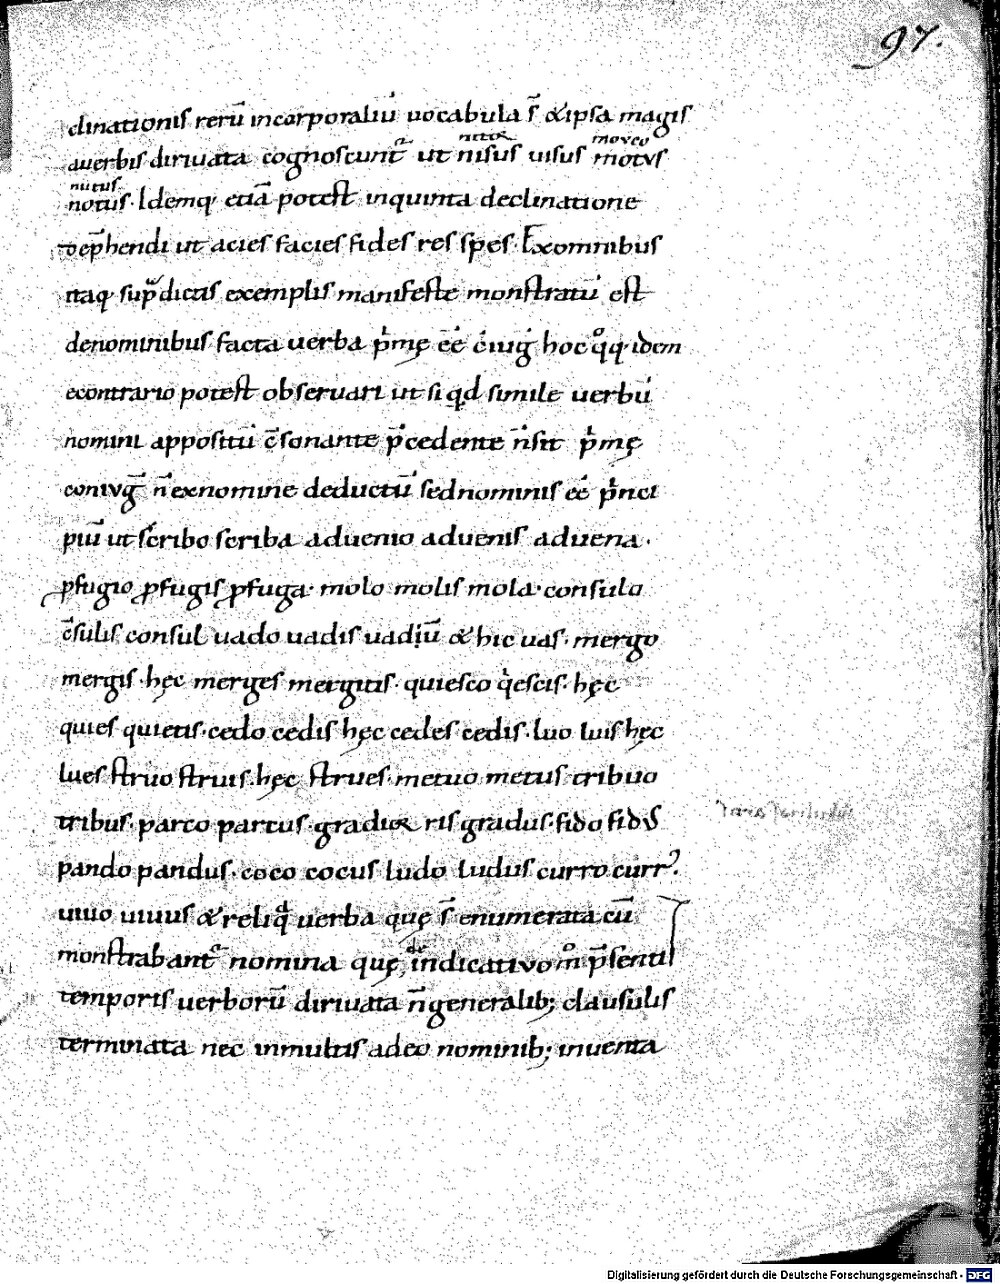 97.
clinationis rerū incorporaliū uocabula s̄ &ipsa magis
nitor moveo
auerbis diriuata cognoscunt᷒ ut nisus uisus motus
nutus
notus. Idemq; etiā potest inquinta declinatione
dep̄hendi ut acies facies fides res spes. Exomnibus
itaq; sup̄dictis exemplis manifeste monstratū est
denominibus facta uerba p̄mę eē c̄iuḡ hoc qͦq; idem
econtrario potest obseruari ut si qd simile uerbū
nomini appositū c̄sonante p̄cedente n̄sit p̄mę
coniuḡ n̄ exnomine deductū sednominis eē p̄nci
piū ut scribo scriba aduenio aduenis aduena.
ꝓfugio ꝓfugis ꝓfuga. molo molis mola. consulo
c̄sulis consul uado uadis uadiū & hic uas. mergo
mergis. hęc merges mergitis. quiesco qͥescis. hęc
quies quietis. cedo cedis hęc cedes cedis. luo luis hęc
lues struo struis. hęc strues. metuo metus tribuo
tribus. parco parcus. gradior ris gradus. fido fidus
pando pandus. coco cocus ludo ludus curro curr᷒.
uiuo uiuus & reliqᷓ uerba quę s̄ enumerata cū
de
monstrabant᷒ nomina quę, indicatiuo mͦ p̄senti
temporis uerborū diriuata n̄ generalib; clausulis
terminata nec inmultis adeo nominib; inuenta
Digitalisierung gefördert durch die Deutsche Forschungsgemeinschaft - DFG